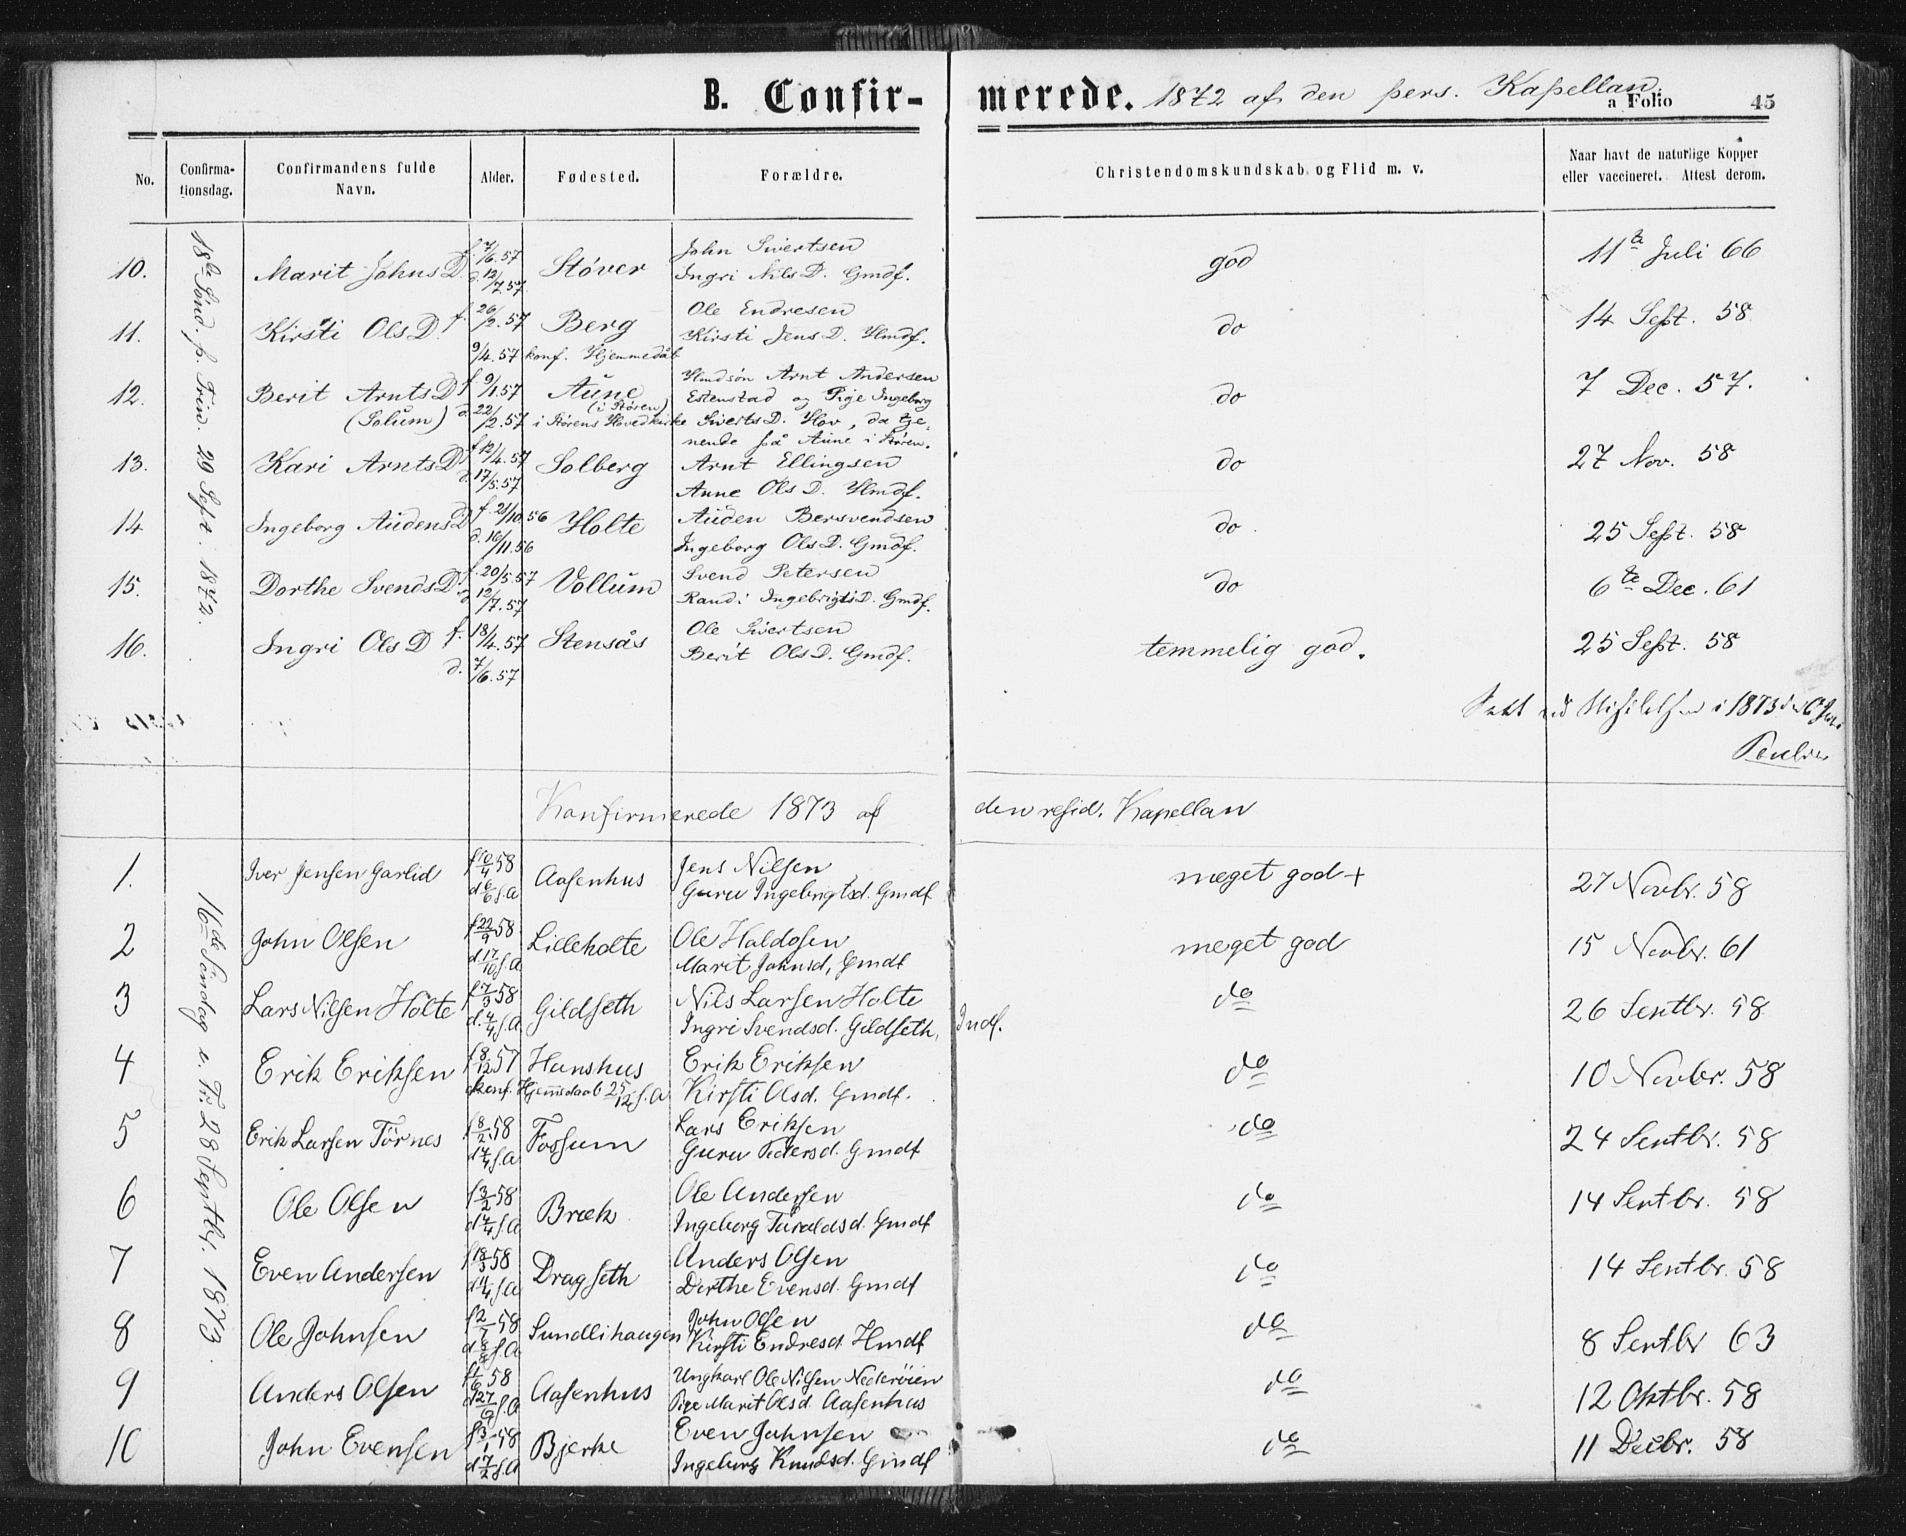 B. Confirmerede. 1872 af den pers. Kapellan.
a Folio 45
No. Confirmationsdag. Confirmandens fulde Navn. Alder. Fødested. Forældre. Christendomskundskab og Flid m. v. Naar havt de naturlige Kopper eller vaccineret. Attest derom.
18de Sønd. p. Trin. 29 Sept. 1872.
10. Marit Johns D. f. 7/6.57 Støver John Sivertsen god 11te Juli 66
d. 12/7.57 Ingri Nils D. Gmdf.
11. Kirsti Ols D. f. 26/2.57 Berg Ole Endresen do 14 Sept. 58
9/4.57 konf. Hjemmedåb Kirsti Jens D. Hmdf.
12. Berit Arnts D f. 9/1.57 Aune Hmdsøn Arnt Andersen do 7 Dec. 57.
(Solum) d. 22/2.57 (i Støren) Estenstad og Pige Ingeborg
i Størens Hovedkirke Siverts D. Hov, da tje-
nende på Aune i Støren.
13. Kari Arnts D f. 12/4.57 Solberg Arnt Ellingsen do 27 Nov. 58
d. 17/5.57 Anne Ols D. Hmdf.
14 Ingeborg Audens D. f. 21/10.56 Holte Auden Bersvendsen do 25 Sept. 58
d. 16/11.56 Ingeborg Ols D. Gmdf.
15. Dorthe Svends D f. 20/5.57 Vollum Svend Petersen do 6te Dec. 61
d. 12/7.57 Randi Ingebrigts D. Gmdf.
16. Ingri Ols D f. 18/4.57 Stensås Ole Sivertsen temmelig god. 25 Sept. 58
d. 7/6.57 Berit Ols D. Gmdf.
i 1873
Konfirmerede 1873 af den resid. Kapellan
16de Søndag e. Tr. 28 Septbr. 1873.
1. Iver Jensen Garlid f 10/4 58 Aasenhus Jens Nilsen meget god + 27 Novbr. 58
d 6/6 s.A Guru Ingebrigtsd. Gmdf
2 John Olsen f 22/9 58 Lilleholte Ole Haldosen meget god 15 Novbr. 61
d 17/10 s.A Marit Johnsd, Gmdf
3 Lars Nilsen Holte f 7/3 58 Gildseth Nils Larsen Holte do 26 Sentbr. 58
d. 4/4 s.A. Ingri Svendsd. Gildseth, Indf.
4 Erik Eriksen f 8/12 57 Hanshus Erik Eriksen do 10 Novbr. 58
konf. Hjemmedaab 25/12 s.A Kirsti Olsd. Gmdf.
5 Erik Larsen Törnes f 8/2 58 Fossum Lars Eriksen do 24 Sentbr. 58
d 4/4 s.A Guru Pedersd. Gmdf
6 Ole Olsen f 3/2 58 Bræk Ole Andersen do 14 Sentbr. 58
d 4/4 s.A Ingeborg Turaldsd. Gmdf
7 Even Andersen f 18/3 58 Dragseth Anders Olsen do 14 Sentbr. 58
d 4/4 s.A Dorthe Evensd. Gmdf
8 Ole Johnsen f 2/7 58 Sundlihaugen John Olsen do 8 Sentbr 63
s.A Kirsti Endresd. Hmdf
9 Anders Olsen 58 Aasenhus Ungkarl Ole Nilsen Nederøien do 12 Oktbr. 58
s.A Pige Marit Olsd. Aasenhus
10 John Evensen f 3/1 58 Bjerke Even Johnsen do 11 Decbr. 58
d 7/2 s.A Ingeborg Knudsd. Gmdf